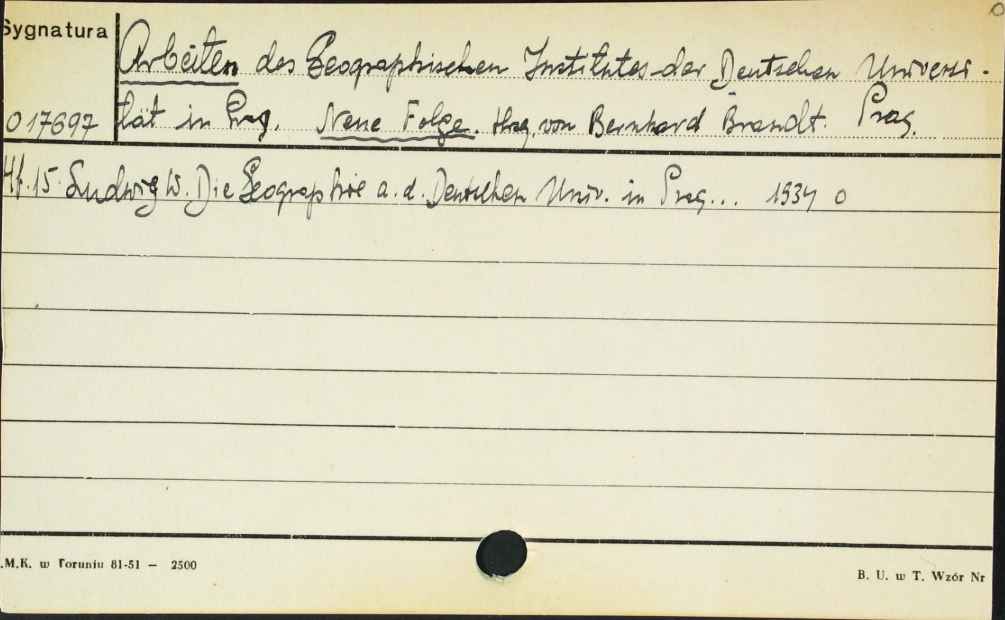 Sygnatura
Arbeiten des Geographischen Institutes der Deutschen Universi-
0 17697 tät in Prag. Neue Folge. Hrsg. von Bernhard Brandt. Prag.
Hf. 15. Ludwig W. Die Geographie a. d. Deutschen Univ. in Prag... 1934 o
.M.K. w Toruniu 81-51 — 2500
B. U. w T. Wzór Nr